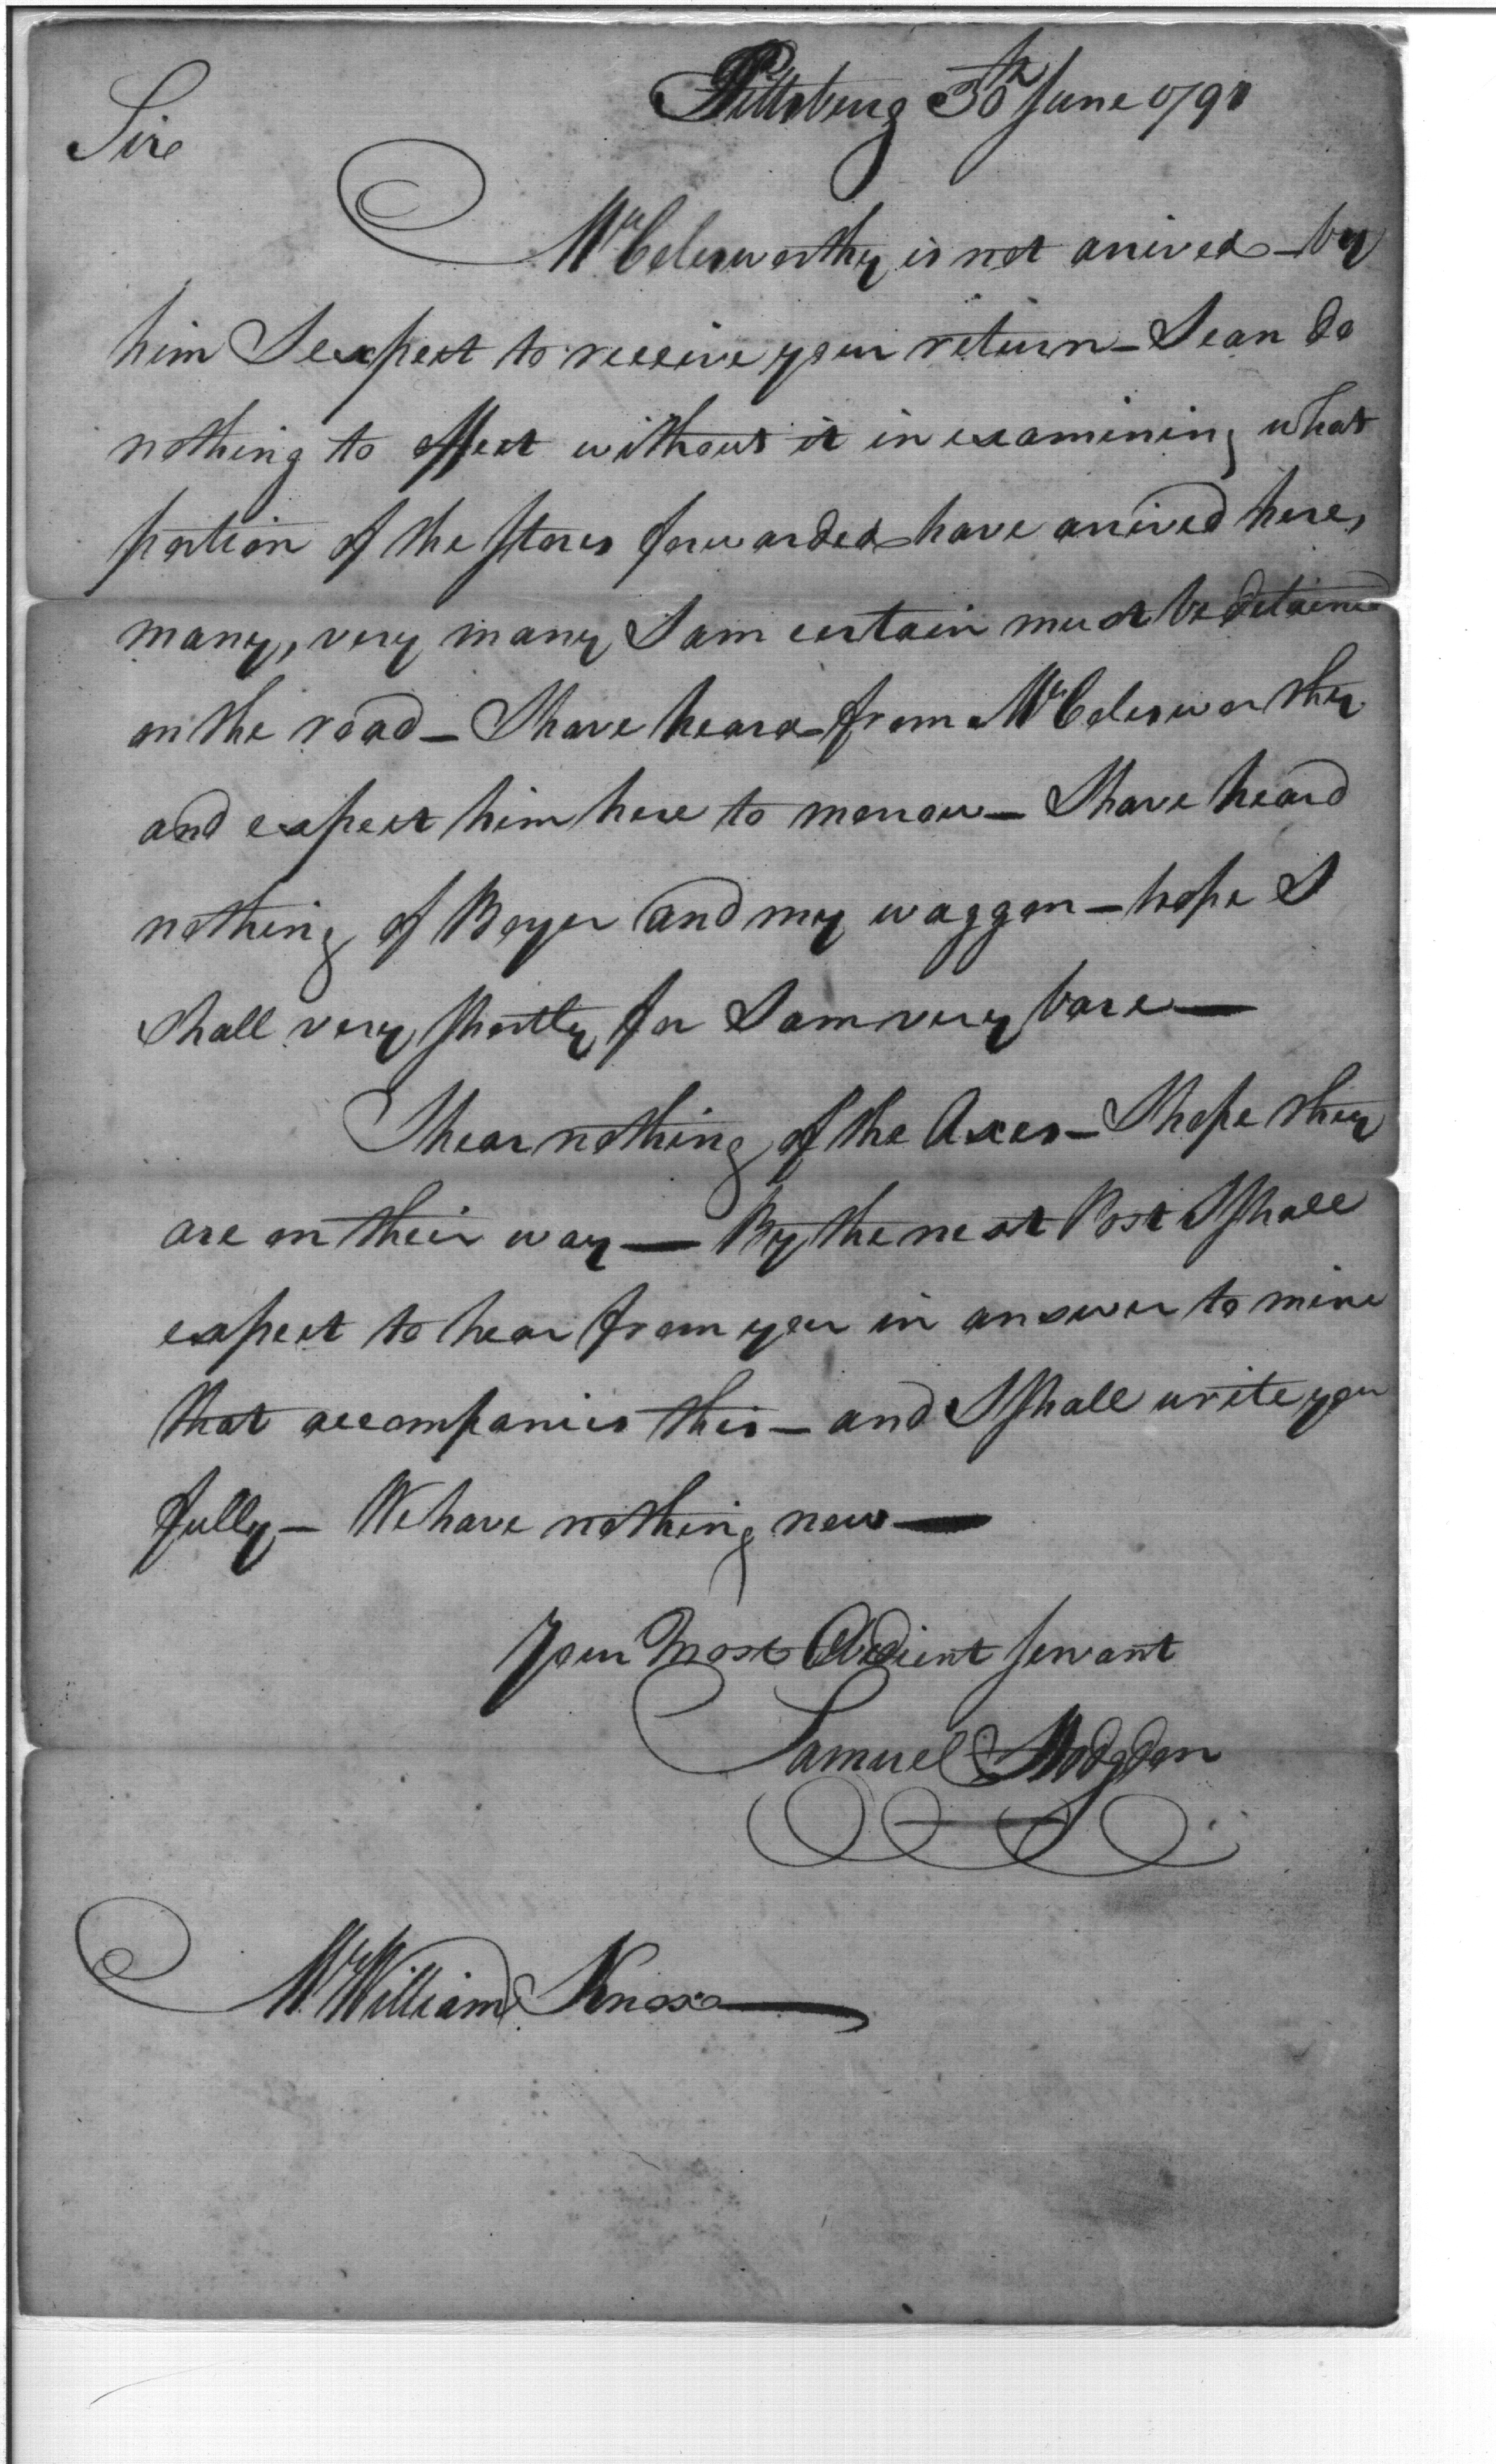 Pittsburg 30th June 1791
Sir
Mr Colesworthy is not arived – by
him I expect to receive your return – I can do
nothing to effect without it in examining what
portion of the stores forwarded have arived here,
many, very many I am certain must be detained
on the road – I have heard from Mr Colesworthy
and expect him here to morrow – I have heard
nothing of Boyer and my waggon – hope I
shall very shortly for I am very bare —
I hear nothing of the Axes – I hope they
are on their way — By the next Post I shall
expect to hear from you in answer to mine
that accompanies this – and I shall write you
fully – We have nothing new —
Your Most Obedient servant
Samuel Hodgdon
Mr William Knox